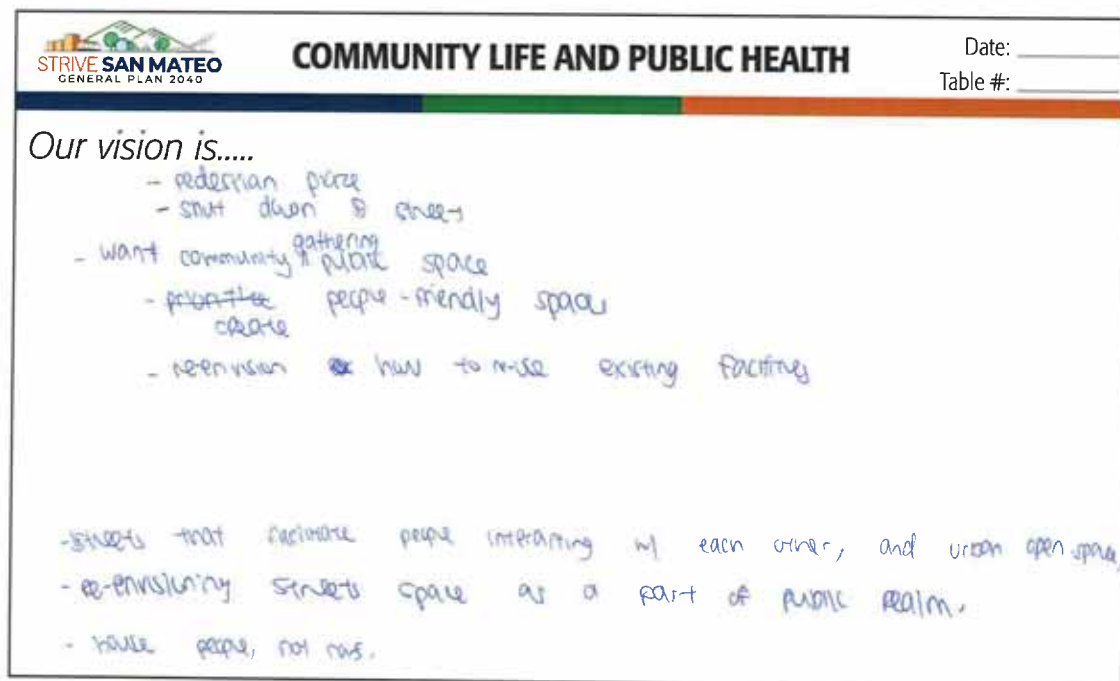 STRIVE SAN MATEO
GENERAL PLAN 2040
COMMUNITY LIFE AND PUBLIC HEALTH
Date:
Table #:
Our vision is.....
- pedestrian plaza
- shut down B street
gathering
- want community ^ public space
- prioritize people-friendly spaces
create
- reenvision how to re-use existing facilities
-streets that facilitate people interacting w/ each other, and urban open space,
- re-envisioning streets space as a part of public realm.
- house people, not cars.